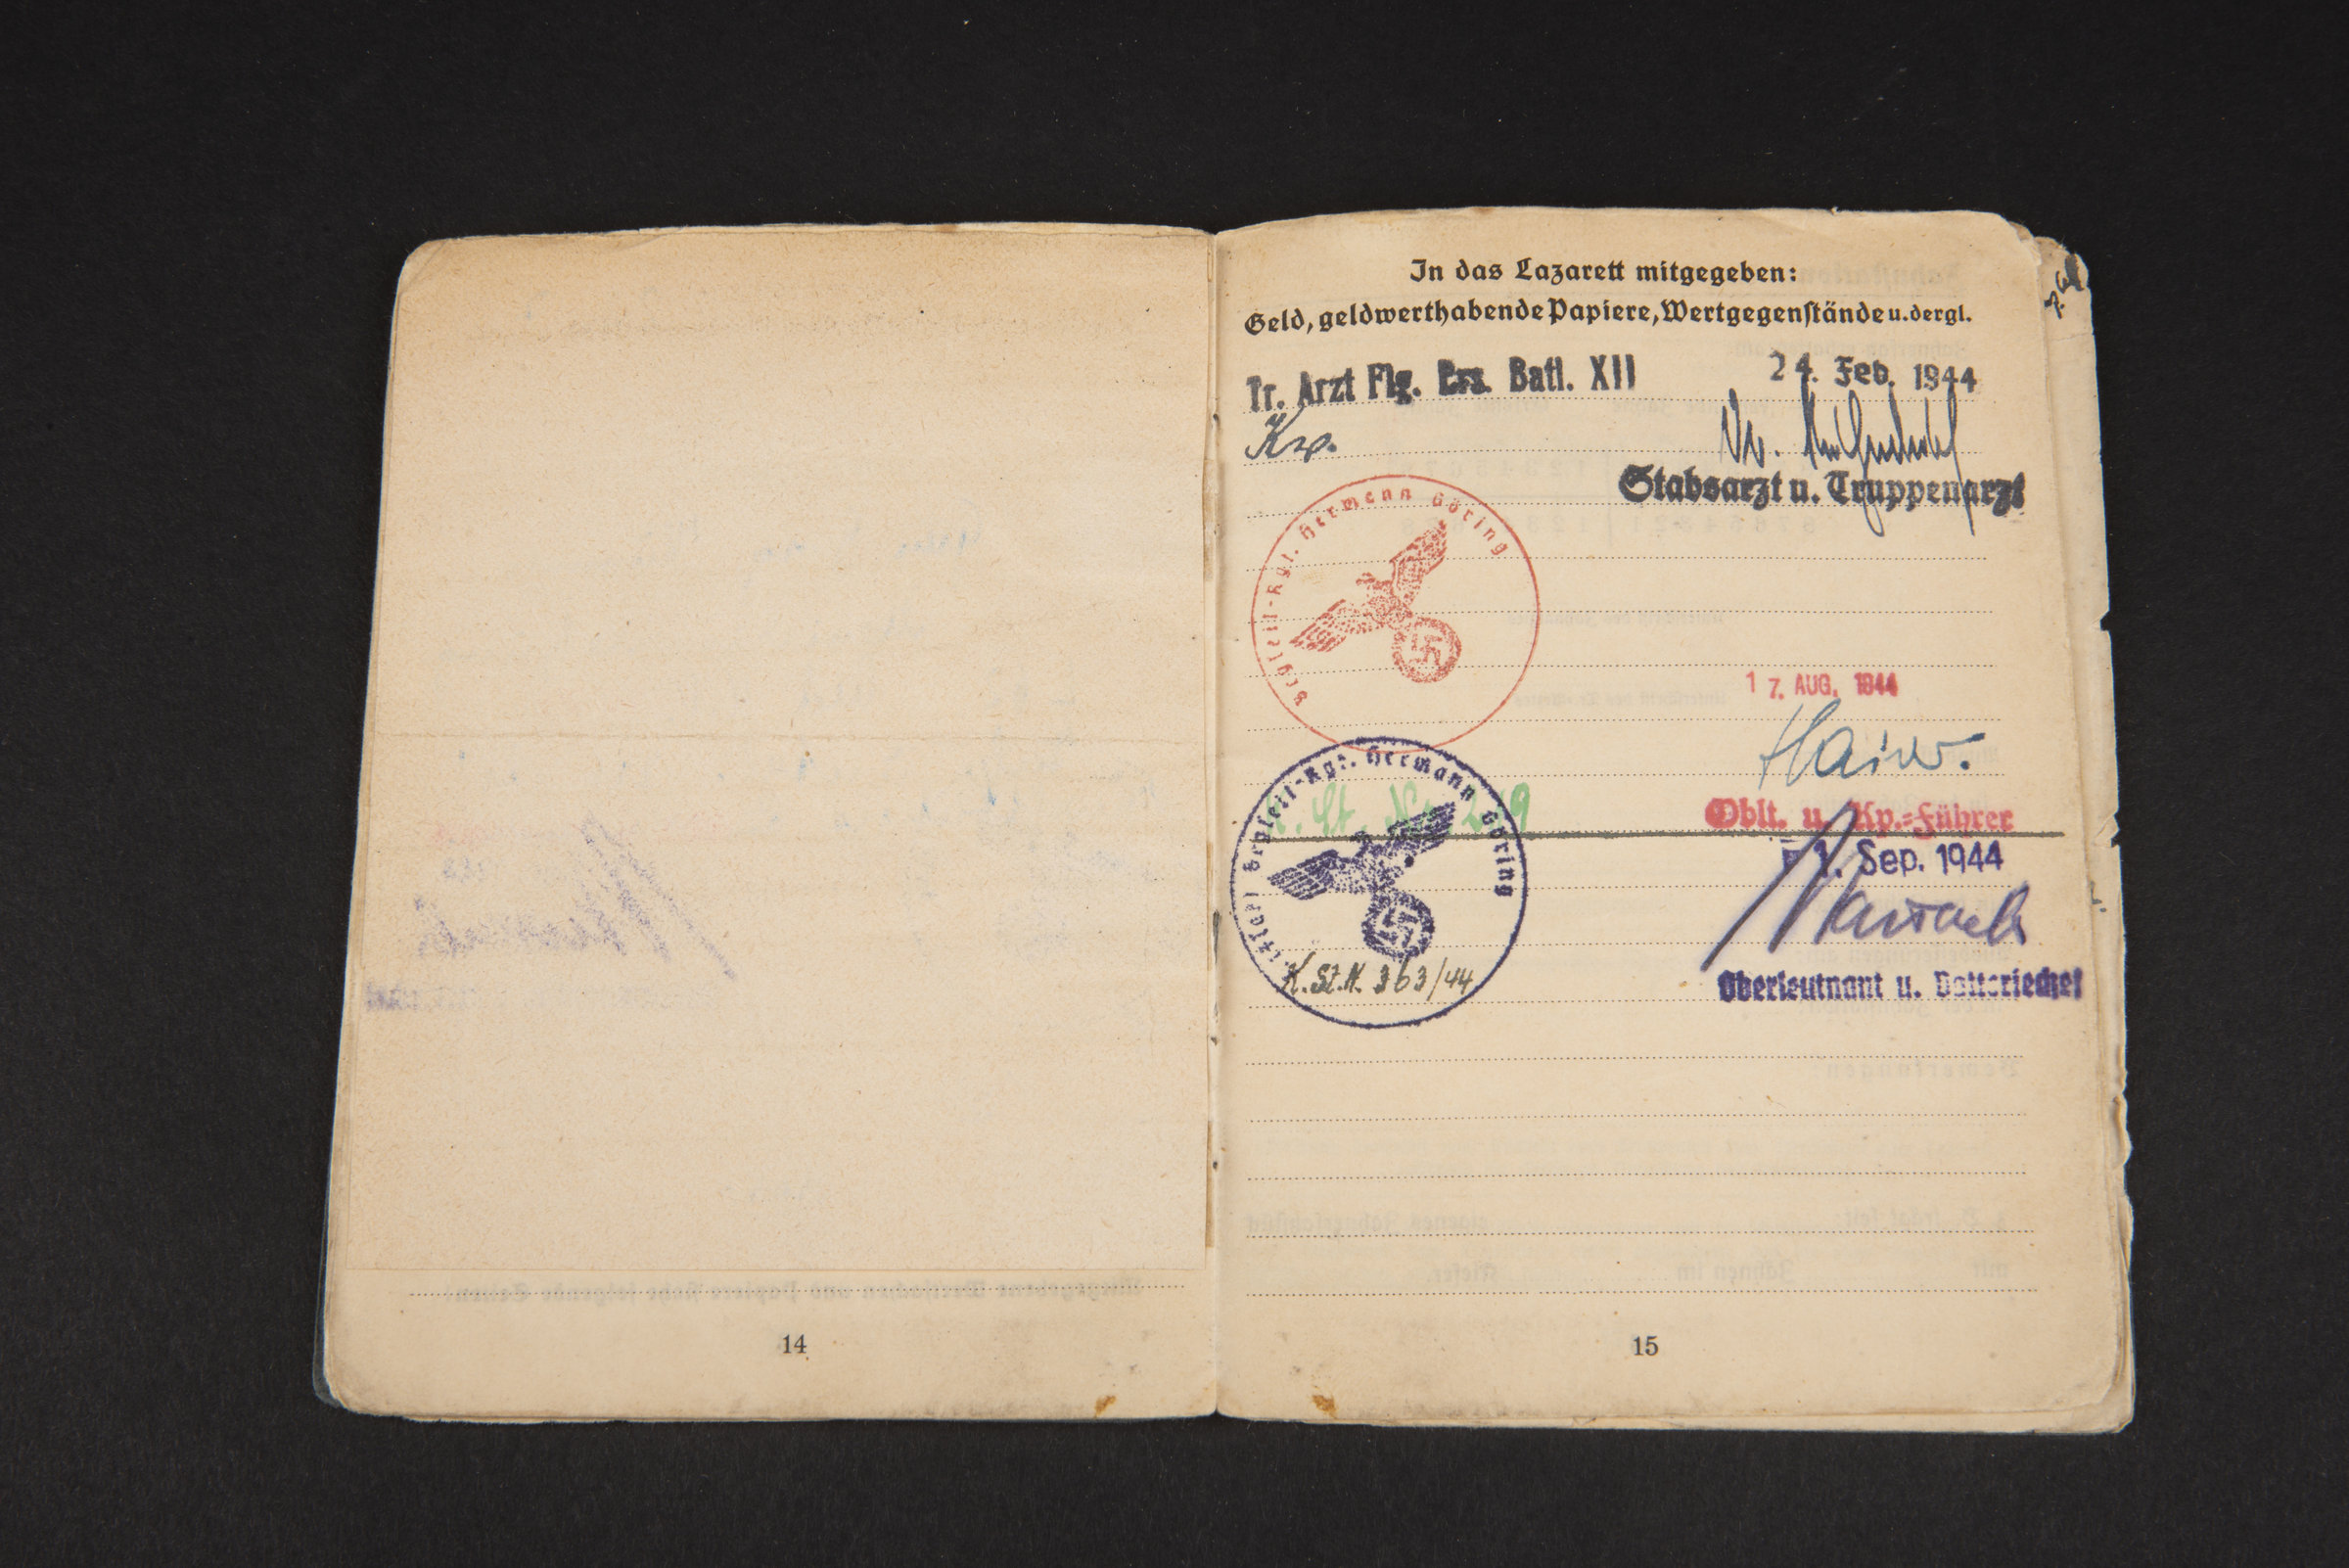 In das Lazarett mitgegeben:
Geld, geldwerthabende Papiere, Wertgegenstände u. dergl.
Tr. Arzt Flg. Ers. Batl. XII
24. Feb. 1944
Kv.
Dr.
Stabsarzt u. Truppenarzt
Begleit-Rgt. Hermann Göring
17. AUG. 1944
Oblt. u. Kp.=Führer
Begleit-Rgt. Hermann Göring
1. Sep. 1944
K.St.N. 363/44
Oberleutnant u. Batteriechef
14
15